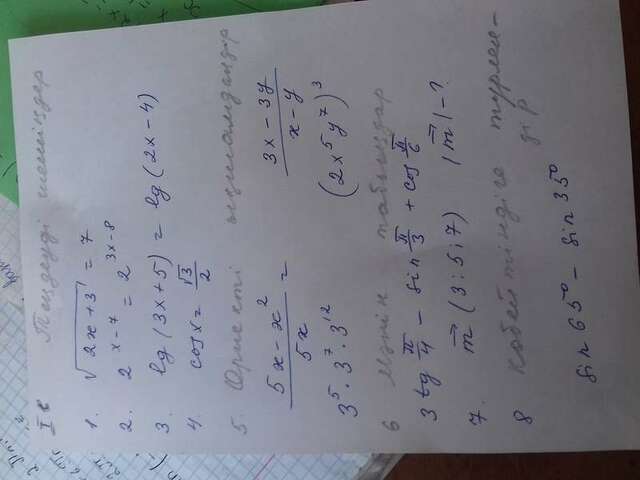 I в Теңдеуді шешіңдер
1. √2x+3 = 7
2. 2^(x-7) = 2^(3x-8)
3. lg(3x+5) = lg(2x-4)
4. cosx = √3/2
5. Өрнекті ықшамдаңдар
(5x-x²)/5x = (3x-3y)/(x-y)
3⁵·3⁷·3¹² (2x⁵y⁷)³
6 мәнін табыңдар
3tg π/4 - sin π/3 + cos π/6
7. m⃗ (3;5;7) |m⃗|-?
8 көбейтіндіге түрлен-
дір
sin65° - sin35°